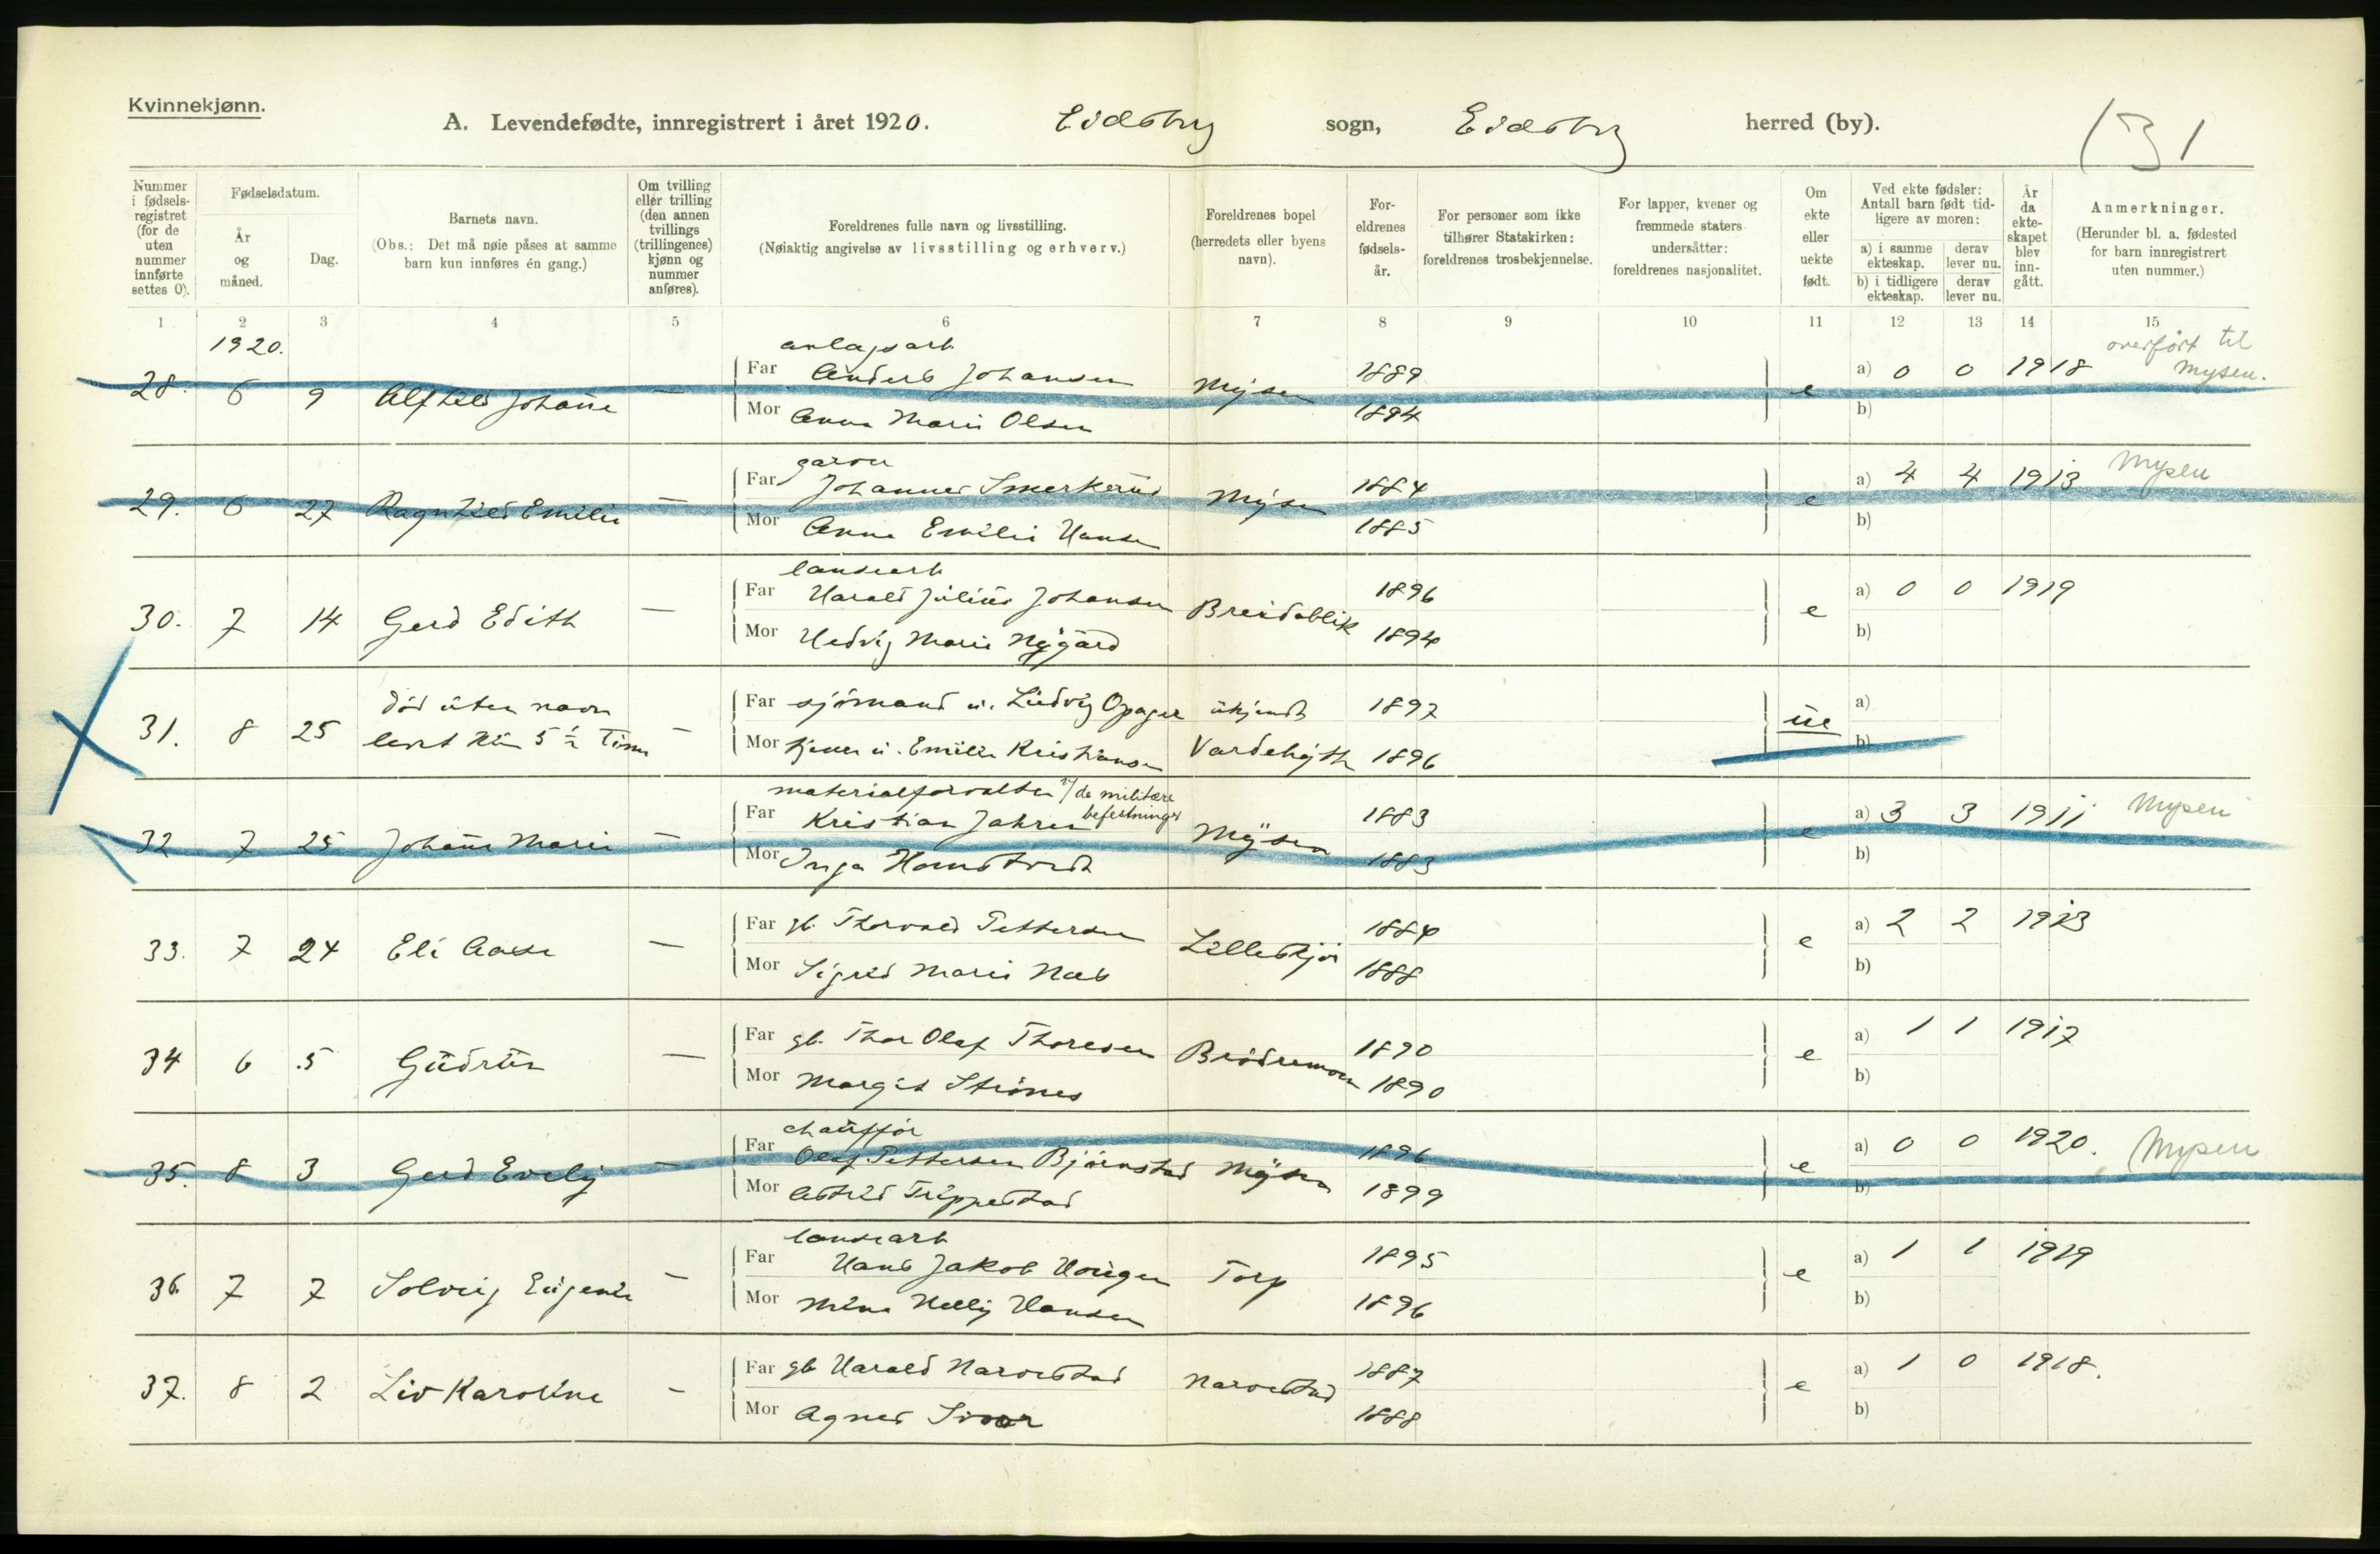 Kvinnekjønn.
A. Levendefødte, innregistrert i året 1920. Eidsberg sogn, Eidsberg herred (by). 131
Nummer i fødselsregistret (for de uten nummer innførte settes 0).
Fødselsdatum.
År og måned.
Dag.
Barnets navn.
(Obs.: Det må nøie påses at samme barn kun innføres én gang.)
Om tvilling eller trilling (den annen tvillings (trillingenes) kjønn og nummer anføres).
Foreldrenes fulle navn og livsstilling.
(Nøiaktig angivelse av livsstilling og erhverv.)
Foreldrenes bopel (herredets eller byens navn).
Foreldrenes fødselsår.
For personer som ikke tilhører Statskirken: foreldrenes trosbekjennelse.
For lapper, kvener og fremmede staters undersåtter: foreldrenes nasjonalitet.
Om ekte eller uekte født.
Ved ekte fødsler: Antall barn født tidligere av moren:
a) i samme ekteskap. derav lever nu.
b) i tidligere ekteskap. derav lever nu.
År da ekteskapet blev inngått.
Anmerkninger.
(Herunder bl. a. fødested for barn innregistrert uten nummer.)
1 2 3 4 5 6 7 8 9 10 11 12 13 14 15
1920.
anlegsarb.
28. 6 9 Alfhild Johanne — Far Anders Johansen Mysen 1889 e a) 0 0 1918 overført til Mysen.
Mor Anna Marie Olsen 1894 b)
garver
29. 6 27 Ragnhild Emilie — Far Johannes Smerkerud Mysen 1884 e a) 4 4 1913 Mysen
Mor Anna Emilie Hansen 1885 b)
landearb
30. 7 14 Gerd Edith — Far Harald Julius Johansen Breidablik 1896 e a) 0 0 1919
Mor Hedvig Marie Nygård 1894 b)
31. 8 25 død uten navn levet kun 5 ½ Time — Far sjömand u. Ludvig Opager ukjendt 1897 ue a)
Mor tjener u. Emilie Kristiansen 1896 b)
materialforvalter v/ de militære befestninger
32 7 25 Johanne Marie — Far Kristian Jahren Mysen 1883 e a) 3 3 1911 Mysen
Mor Inga 1883 b)
33. 7 24 Eli Aase — Far gb. Thorvald Pettersen Lillestkjör 1884 e a) 2 2 1913
Mor Sigrid Marie Næs 1888 b)
34 6 5 Gudrun — Far gb. Thor Olaf Thoresen Brödremoen 1890 e a) 1 1 1917
Mor Margit Strönes 1890 b)
chauffør
35. 8 3 Gerd Evely — Far Olaf Pettersen Bjørnstad Mysen 1896 e a) 0 0 1920. Mysen
Mor Astrid Trippestad 1899 b)
landearb
36. 7 7 Solveig Eugenie — Far Hans Jakob Haugen Torp 1895 e a) 1 1 1919
Mor Mina Nelly Hansen 1896 b)
37. 8 2 Liv Karoline — Far gb Harald Narvestad Narvestad 1887 e a) 1 0 1918.
Mor Agnes 1888 b)